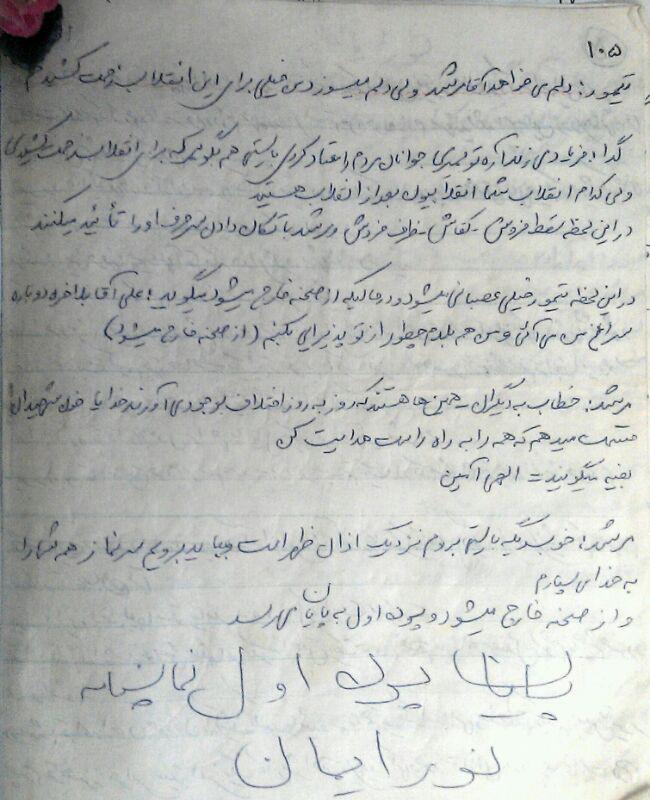 ۱۰۵
تیمور: دلم می خواهد آقا مرشد ولی دلم میسوزد من خیلی برای این انقلاب زحمت کشیدم
گدا: فریاد می زند آره تو لیدری جوانان مردم را معتاد کردی بایستی هم بگوئی که برای انقلاب زحمت کشیدی
ولی کدام انقلاب شما انقلابیون بعد از انقلاب هستید
در این لحظه سقط فروش - کفاش - ظرف فروش و مرشد با تکان دادن سر حرف او را تأئید میکنند
در این لحظه تیمور خیلی عصبانی میشود و در حالیکه از صحنه خارج میشود میگوید: علی آقا بلاخره دوباره
سراغ من می آئی و من هم بلدم چطور از تو پذیرایی بکنم (از صحنه خارج میشود)
مرشد: خطاب به دیگران - همین ها هستند که روز به روز اختلاف بوجود می آورند خدایا خون شهیدان
قسمت میدهم که همه را به راه راست هدایت کن
بقیه میگویند = الهی آمین
مرشد: خوب دیگه بایستی بروم نزدیک اذان ظهر است و باید بروم سر نماز همه شما را
به خدا می سپارم
و از صحنه خارج میشود و پرده اول به پایان می رسد
پایان پرده اول نمایشنامه
نور ایمان